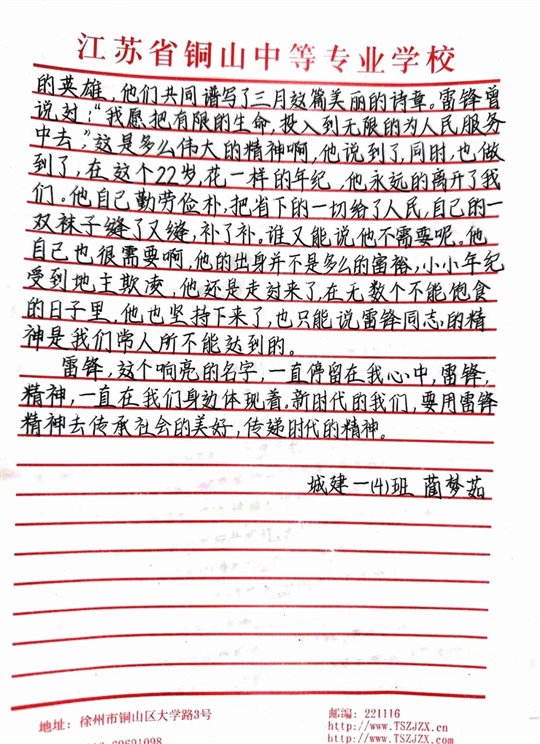 江苏省铜山中等专业学校
的英雄，他们共同谱写了三月这篇美丽的诗章。雷锋曾
说过："我愿把有限的生命，投入到无限的为人民服务
中去，"这是多么伟大的精神啊，他说到了，同时，也做
到了，在这个22岁，花一样的年纪，他永远的离开了我
们。他自己勤劳俭朴，把省下的一切给了人民，自己的一
双袜子缝了又缝，补了补。谁又能说他不需要呢。他
自己也很需要啊，他的出身并不是多么的富裕，小小年纪
受到地主欺凌，他还是走过来了，在无数个不能饱食
的日子里，他也坚持下来了，也只能说雷锋同志的精
神是我们常人所不能达到的。
雷锋，这个响亮的名字，一直停留在我心中，雷锋，
精神，一直在我们身边体现着。新时代的我们，要用雷锋
精神去传承社会的美好，传递时代的精神。
城建一(4)班 蔺梦茹
地址：徐州市铜山区大学路3号
邮编：221116
http://www.TSZJZX.cn
http://www.TSZJZX.com